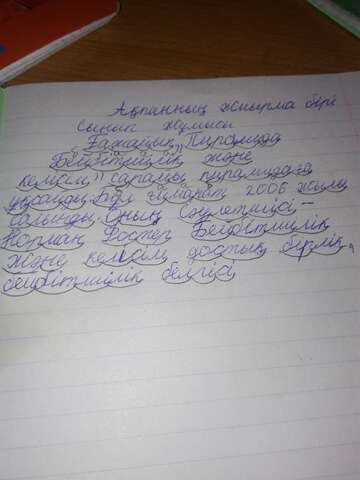 Ақпанның жиырма бірі
Сынып жұмысы
Ғажайып Пирамида
„Бейбітшілік және
келісім" сарайы пирамидаға
ұқсайды. Бұл ғимарат 2006 жылы
салынды. Оның сәулетшісі –
Норман Фостер. Бейбітшілік
және келісім достық, бірлік,
бейбітшілік белгісі